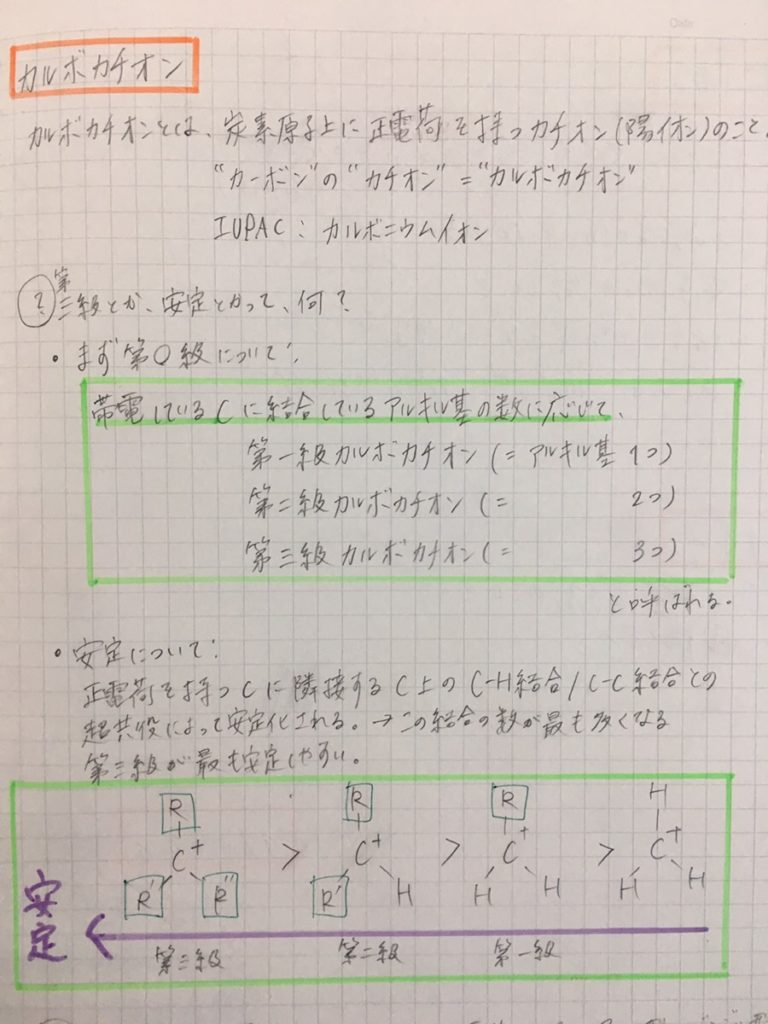 カルボカチオン
カルボカチオンとは、炭素原子上に正電荷を持つカチオン(陽イオン)のこと。
"カーボン"の"カチオン"="カルボカチオン"
IUPAC:カルボニウムイオン
? 第三級とか、安定とかって、何?
・まず第○級について:
帯電しているCに結合しているアルキル基の数に応じて、
第一級カルボカチオン(=アルキル基 1つ)
第二級カルボカチオン(= 2つ)
第三級カルボカチオン(= 3つ)
と呼ばれる。
・安定について:
正電荷を持つCに隣接するC上のC-H結合/C-C結合との
超共役によって安定化される。→この結合の数が最も多くなる
第三級が最も安定しやすい。
R R R H
C+ > C+ > C+ > C+
R' R" R' H H H H H
安定
第三級 第二級 第一級